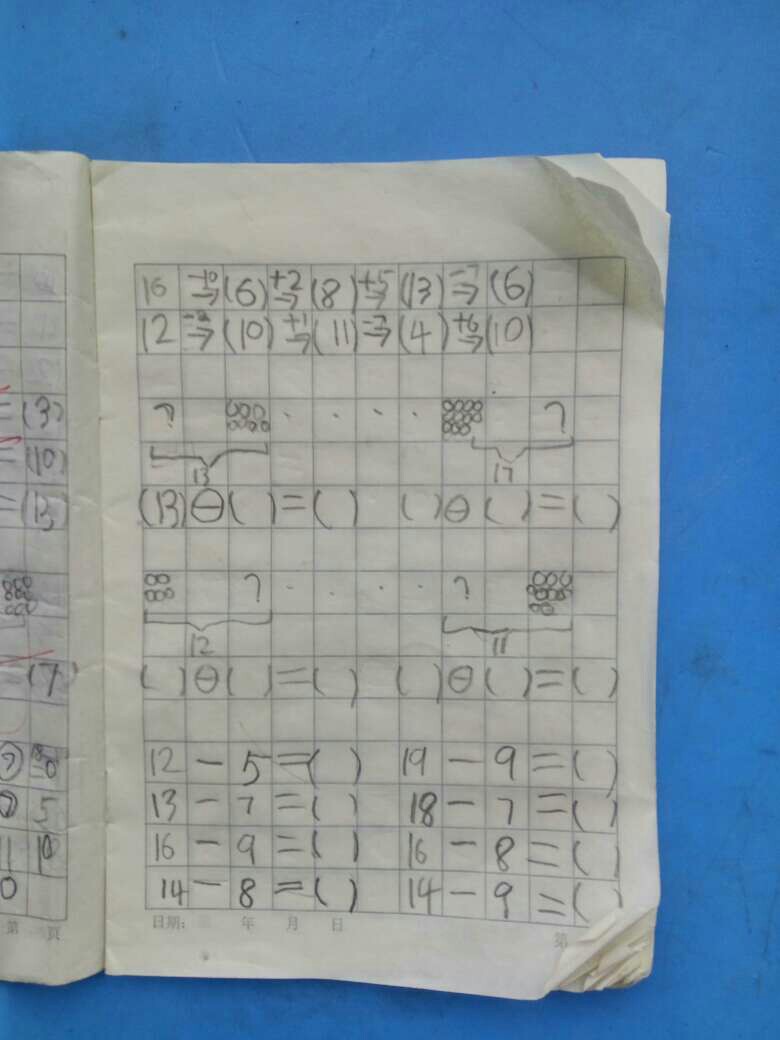 (3)
(10)
(13)
(7)
5
0
16 -10→ (6) +2→ (8) +5→ (13) -7→ (6)
12 -2→ (10) +1→ (11) -7→ (4) +6→ (10)
? · · · · ?
13 17
(13)⊖( )=( ) ( )⊖( )=( )
? · · · · ?
12 11
( )⊖( )=( ) ( )⊖( )=( )
12-5=( ) 19-9=( )
13-7=( ) 18-7=( )
16-9=( ) 16-8=( )
14-8=( ) 14-9=( )
第 頁 日期: 年 月 日 第